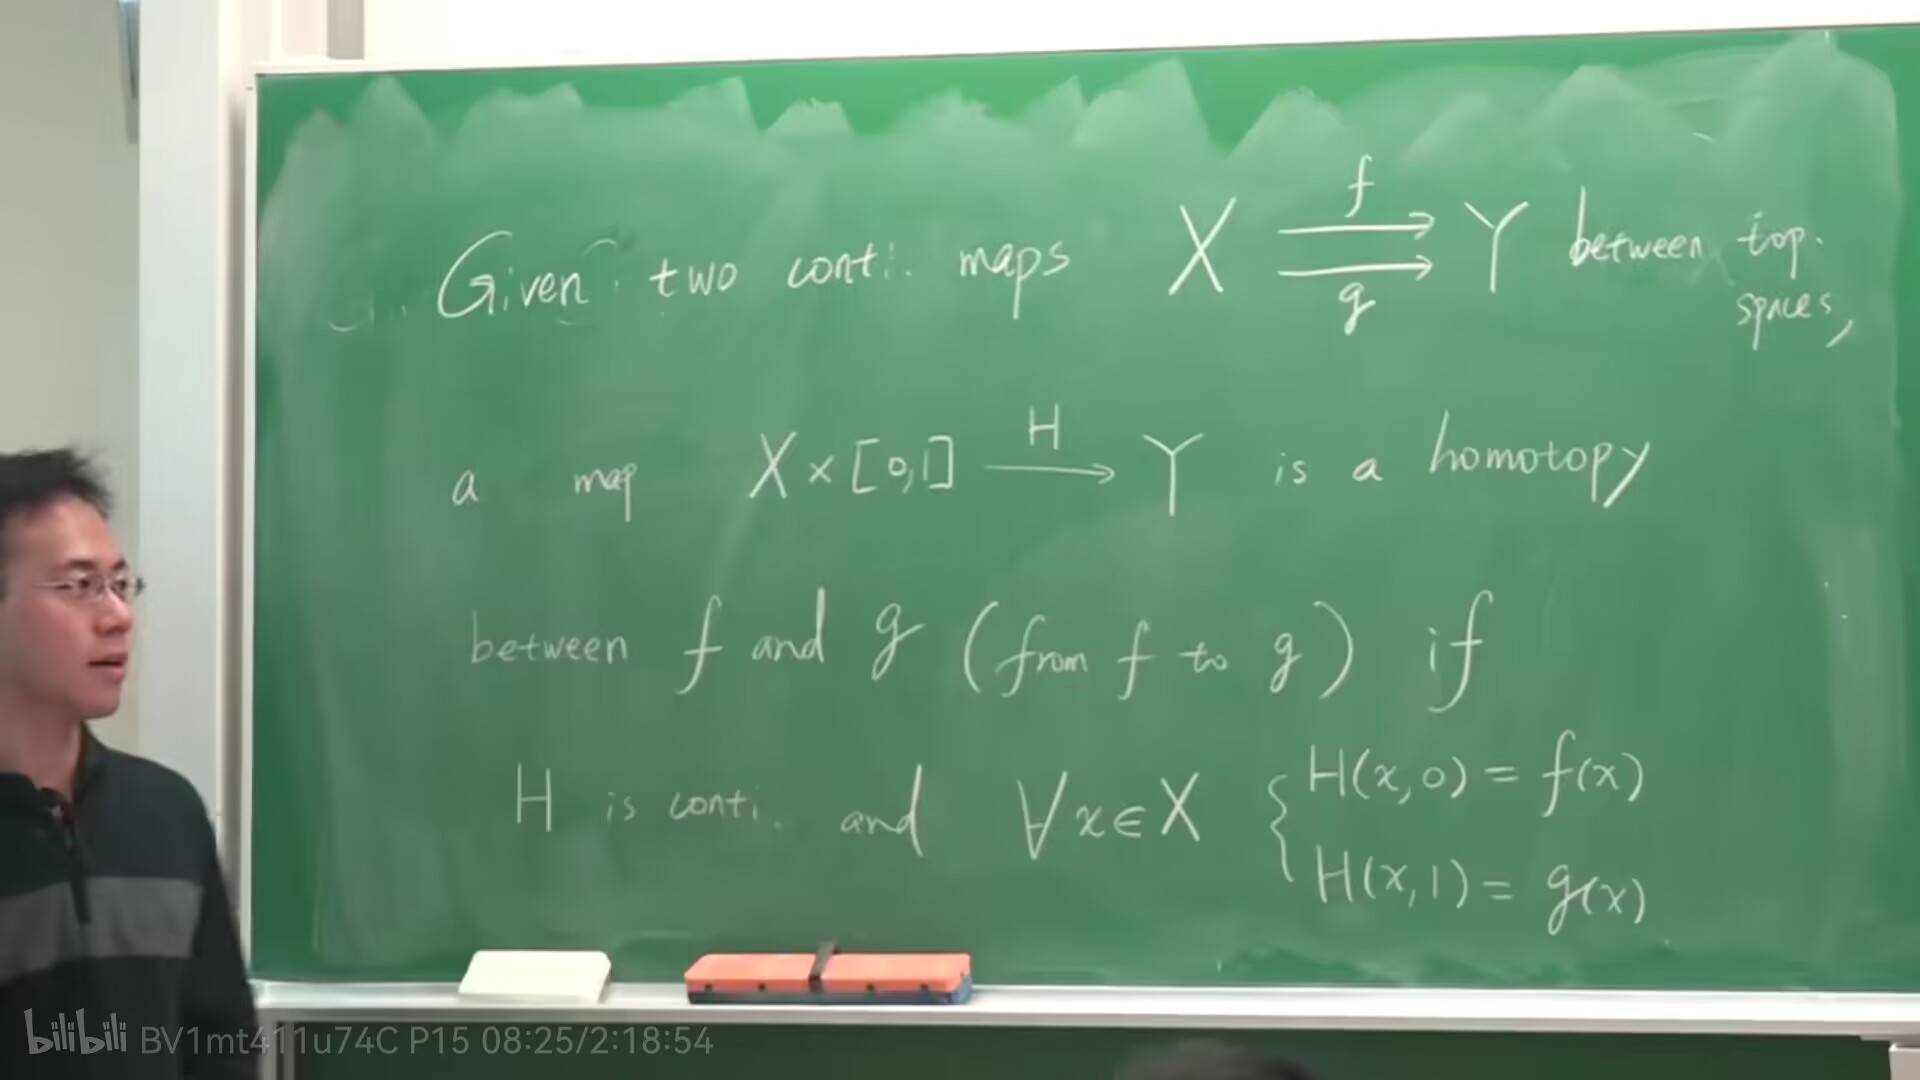 Given two conti. maps X f g Y between top.
spaces,
a map X × [0,1] H Y is a homotopy
between f and g (from f to g) if
H is conti. and ∀x∈X { H(x,0) = f(x)
H(x,1) = g(x)
bilibili BV1mt411u74C P15 08:25/2:18:54